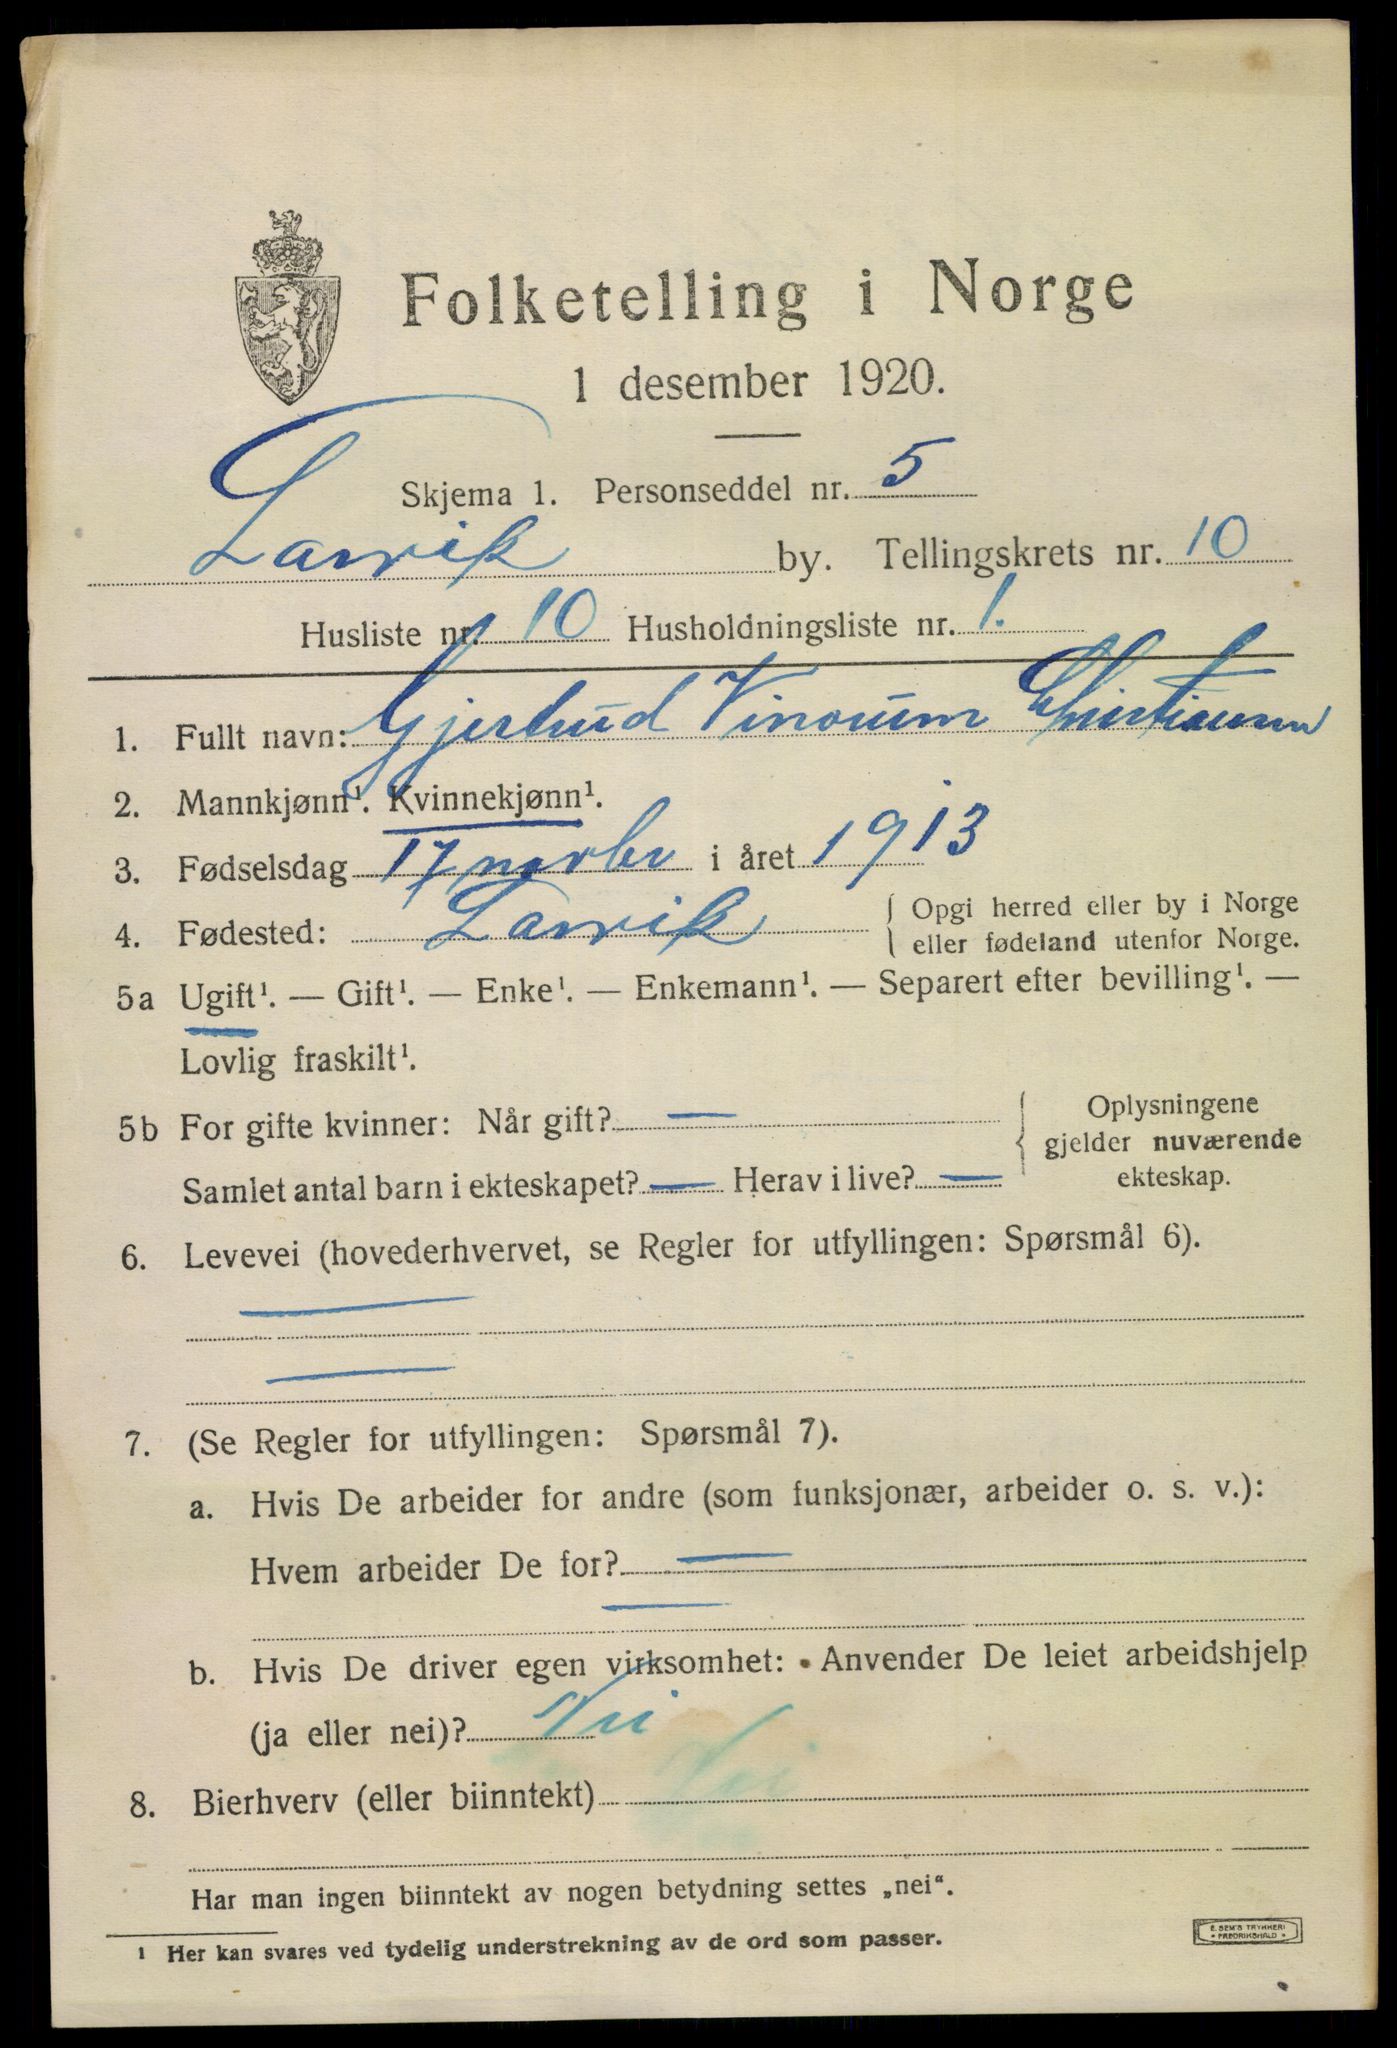 Folketelling i Norge
1 desember 1920.
Skjema 1. Personseddel nr. 5
Larvik by. Tellingskrets nr. 10
Husliste nr. 10 Husholdningsliste nr. 1.
1. Fullt navn: Gjertrud
2. Mannkjønn¹. Kvinnekjønn¹.
3. Fødselsdag 17 novbr i året 1913
4. Fødested: Larvik { Opgi herred eller by i Norge
{ eller fødeland utenfor Norge.
5a Ugift¹. — Gift¹. — Enke¹. — Enkemann¹. — Separert efter bevilling¹. —
Lovlig fraskilt¹.
5b For gifte kvinner: Når gift? — Oplysningene
gjelder nuværende
Samlet antal barn i ekteskapet? — Herav i live? — ekteskap.
6. Levevei (hovederhvervet, se Regler for utfyllingen: Spørsmål 6).
—
—
7. (Se Regler for utfyllingen: Spørsmål 7).
a. Hvis De arbeider for andre (som funksjonær, arbeider o. s. v.):
Hvem arbeider De for? —
—
b. Hvis De driver egen virksomhet: • Anvender De leiet arbeidshjelp
(ja eller nei)? Nei
8. Bierhverv (eller biinntekt) Nei
Har man ingen biinntekt av nogen betydning settes „nei“.
¹ Her kan svares ved tydelig understrekning av de ord som passer.
E. SEM'S TRYKKERI
• FREDRIKSHALD •